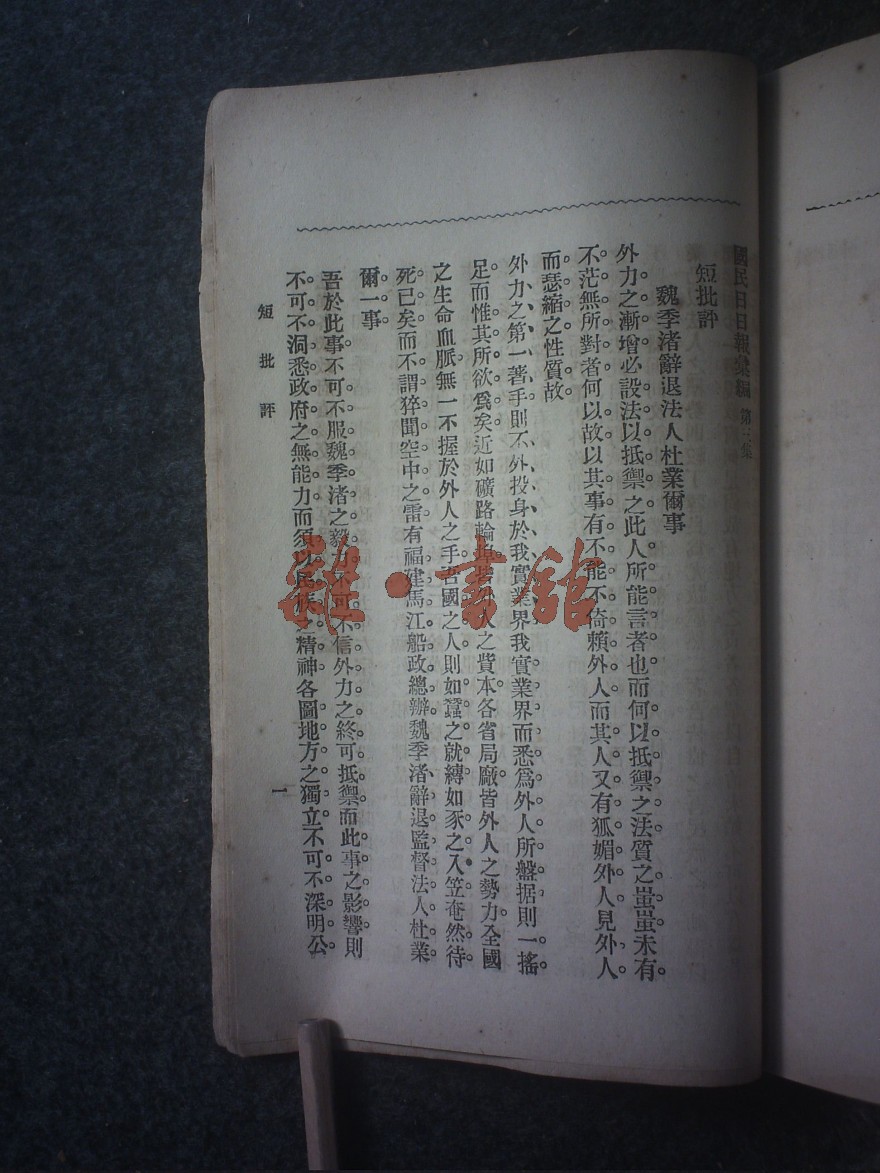 國民日日報彙編 第三集
短批評
魏季渚辭退法人杜業爾事
外力之漸增必設法以抵禦之此人所能言者也而何以抵禦之法質之蚩蚩未有
不茫無所對者何以故以其事有不能不倚賴外人而其人又有狐媚外人見外人
而瑟縮之性質故
外力之第一著手則不外投身於我實業界我實業界而悉爲外人所盤据則一搖
足而惟其所欲爲矣近如礦路輪埠皆外人之貲本各省局廠皆外人之勢力全國
之生命血脈無一不握於外人之手吾國之人則如蠶之就縛如豕之入笠奄然待
死已矣而不謂猝聞空中之雷有福建馬江船政總辦魏季渚辭退監督法人杜業
爾一事
吾於此事不可不服魏季渚之毅力不可不信外力之終可抵禦而此事之影響則
不可不洞悉政府之無能力而須以民族之精神各圖地方之獨立不可不深明公
短批評
一
雜·書館